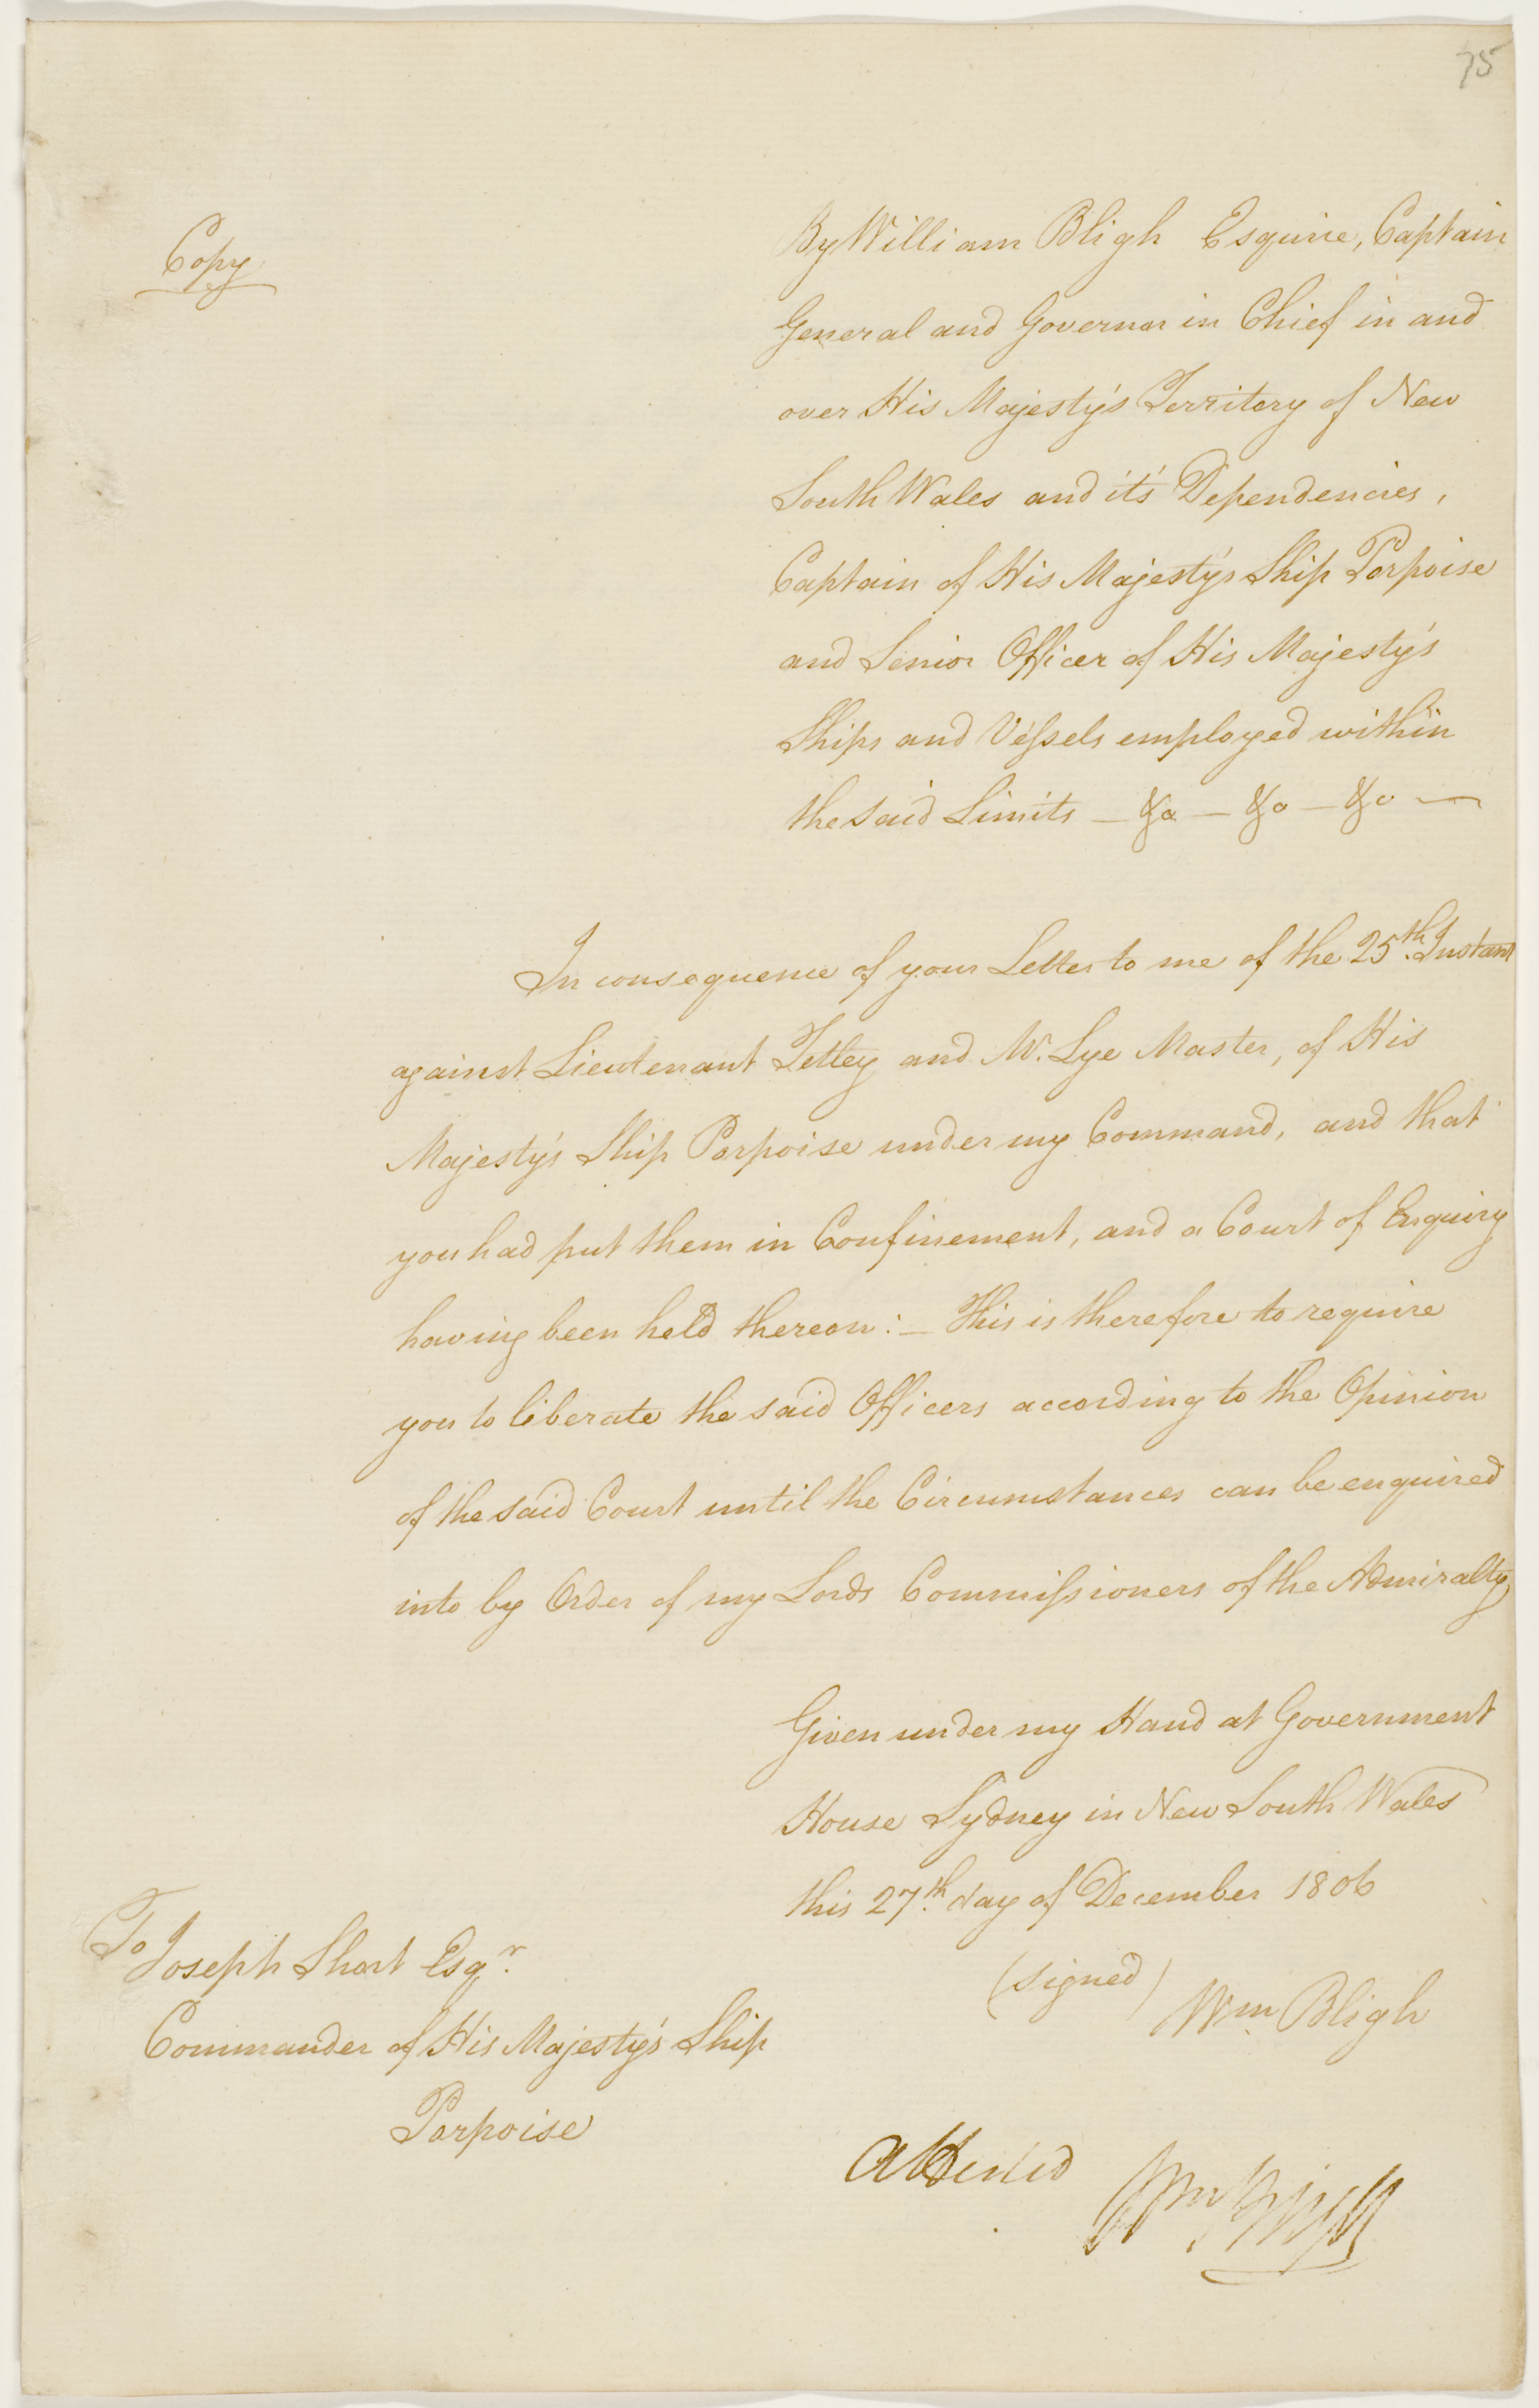 75
Copy
By William Bligh Esquire, Captain
General and Governor in Chief in and
over His Majesty's Territory of New
South Wales and it's Dependencies,
Captain of His Majesty's Ship Porpoise
and Senior Officer of His Majesty's
Ships and Veſsels employed within
the said Limits — &a — &a — &a —
In consequence of your Letter to me of the 25th. Instant
against Lieutenant Tetley and Mr. Lye Master, of His
Majesty's Ship Porpoise under my Command, and that
you had put them in Confinement, and a Court of Enquiry
having been held thereon:— This is therefore to require
you to liberate the said Officers according to the Opinion
of the said Court until the Circumstances can be enquired
into by Order of my Lords Commiſsioners of the Admiralty
Given under my Hand at Government
House Sydney in New South Wales
this 27th. day of December 1806
(signed) Wm Bligh
To
Joseph Short Esqr.
Commander of His Majesty's Ship
Porpoise
Attested Wm Bligh